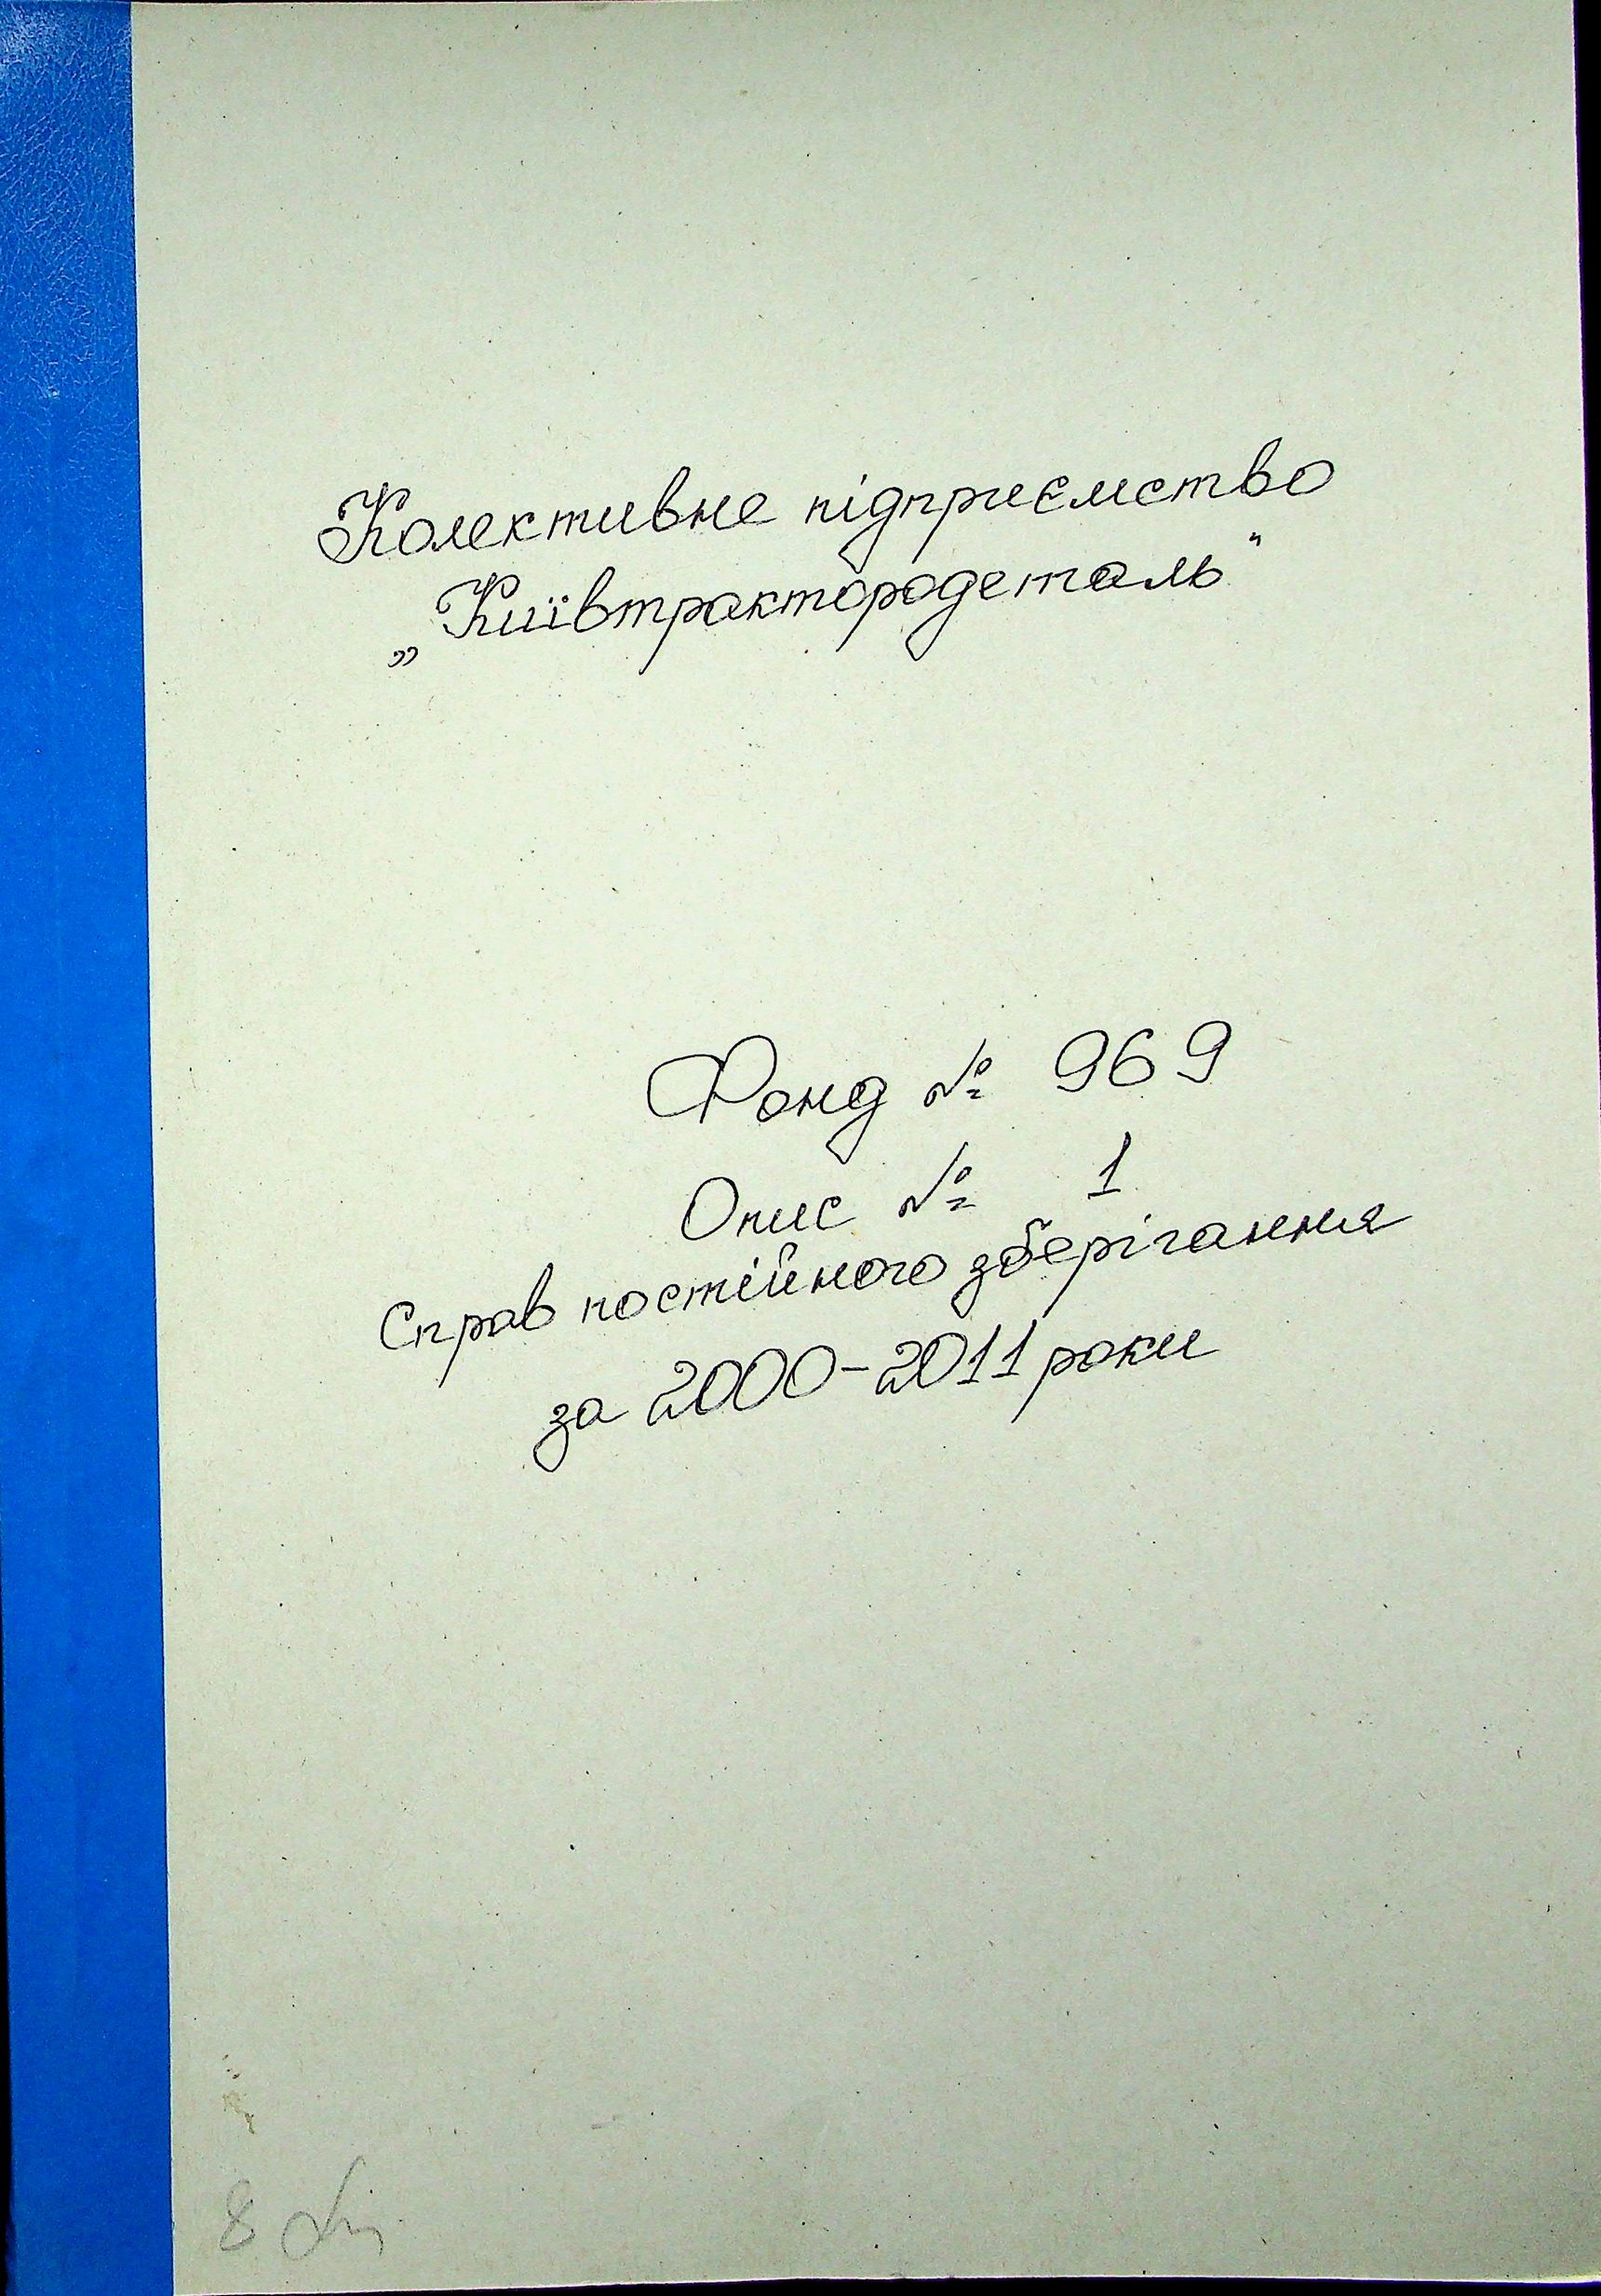 Колективне підприємство
„Київтрактородеталь"
Фонд № 969
Опис № 1
Справ постійного зберігання
за 2000-2011 роки
8